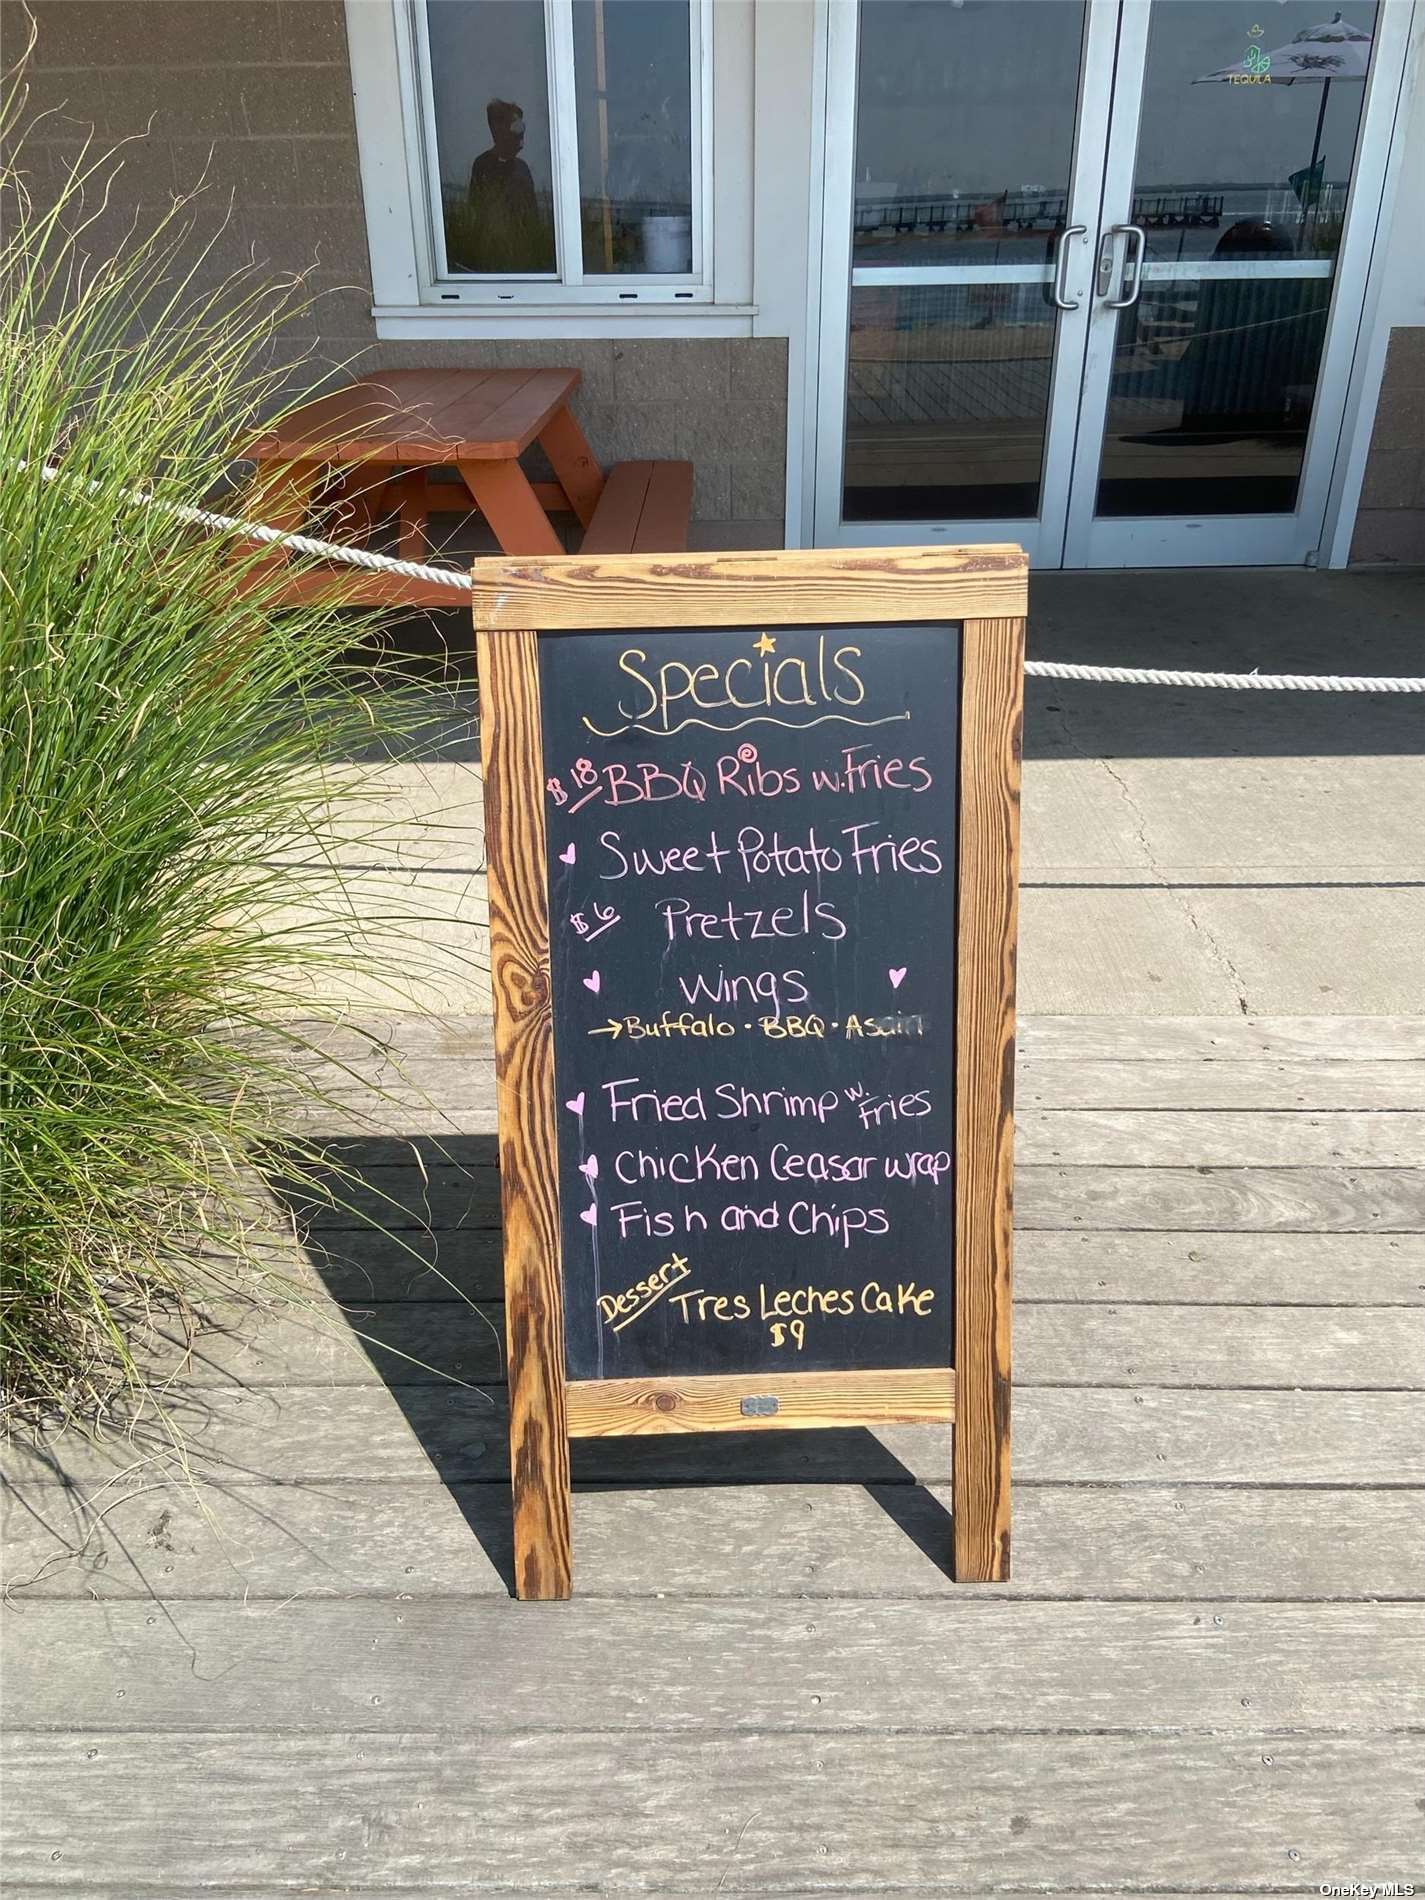 TEQUILA
Specials
$18 BBQ Ribs w. Fries
Sweet Potato Fries
$6 Pretzels
Wings
→ Buffalo · BBQ · Asain
Fried Shrimp w. Fries
Chicken Ceasar wrap
Fish and Chips
Dessert Tres Leches Cake
$9
OneKey MLS